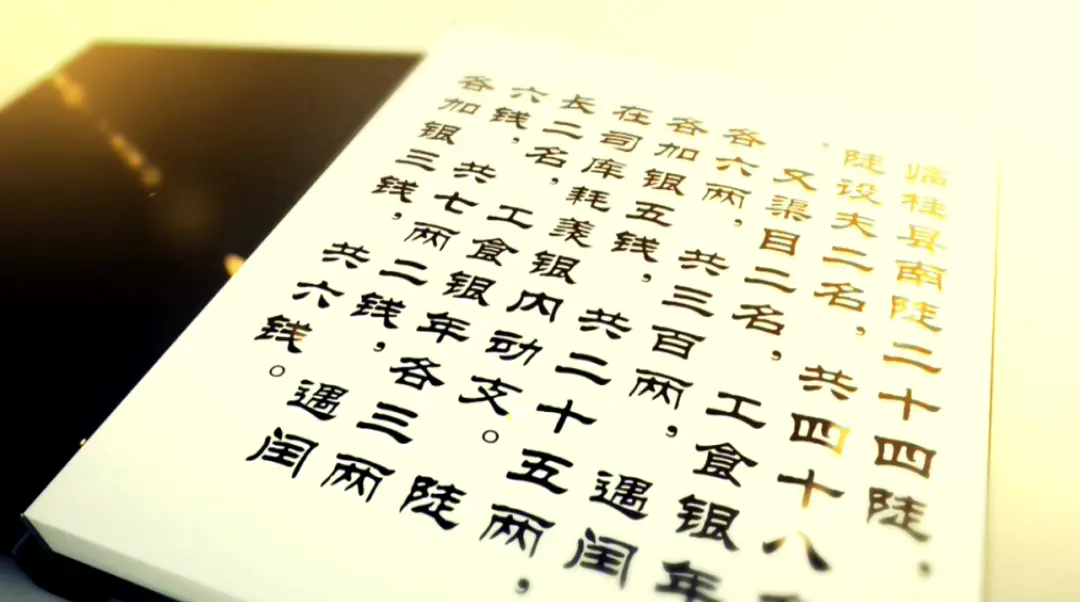 临桂县南陡二十四陡，
陡设夫二名，共四十八
、又渠目二名，工食银年
各六两，共三百两，遇闰
各加银五钱，共二十五两，
在司库耗羡银内动支。陡
长二名，工食银年各三两
六钱，共七两二钱，遇闰
各加银三钱，共六钱。